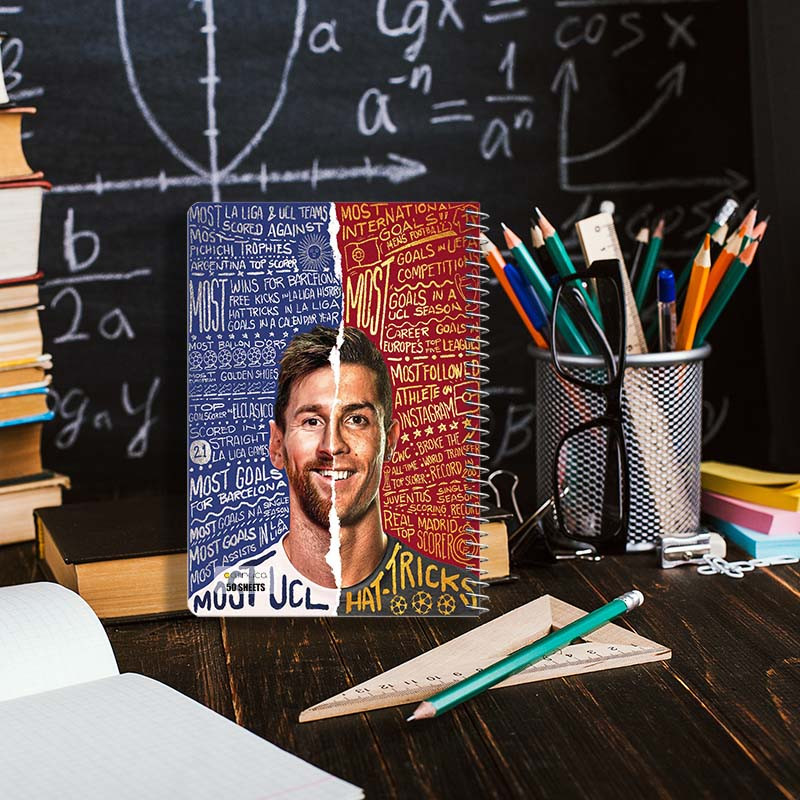 lg x
cos x
a
a⁻ⁿ = 1/aⁿ
b
2a
MOST LA LIGA & UCL TEAMS
SCORED AGAINST
MOST
PICHICHI TROPHIES
ARGENTINA TOP SCORER
MOST
WINS FOR BARCELONA
FREE KICKS IN LA LIGA HISTORY
HAT TRICKS IN LA LIGA
GOALS IN A CALENDAR YEAR
MOST BALLON D'ORS
GOLDEN SHOES
TOP
GOALSCORER IN ELCLASICO
SCORED IN
21 STRAIGHT
LA LIGA GAMES
MOST GOALS
FOR BARCELONA
MOST GOALS IN A SEASON
MOST GOALS IN LA LIGA
MOST ASSISTS
MOST UCL
50 SHEETS
MOST INTERNATIONAL
GOALS
MEN'S FOOTBALL
MOST
GOALS IN UEFA
COMPETITIONS
GOALS IN A
UCL SEASON
CAREER GOALS
EUROPE'S TOP FIVE LEAGUES
MOST FOLLOWED
ATHLETE ON
INSTAGRAM
CWC
ALL-TIME
TOP SCORER
BROKE THE
WORLD TRANSFER
RECORD IN
JUVENTUS SINGLE
SEASON
SCORING RECORD
REAL MADRID
TOP SCORER
HAT-TRICKS